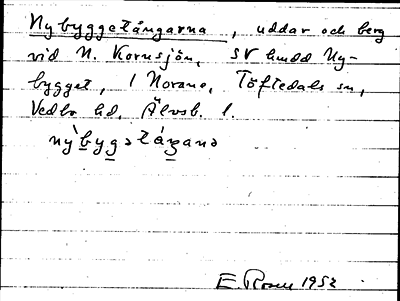 Nybyggetångarna, uddar och berg
vid N. Kornsjön, SV hmdd Ny-
bygget, 1 Norane, Töftedals sn,
Vedbo hd, Älvsb. l.
nỳbygətáŋanə
E. Rosen 1952